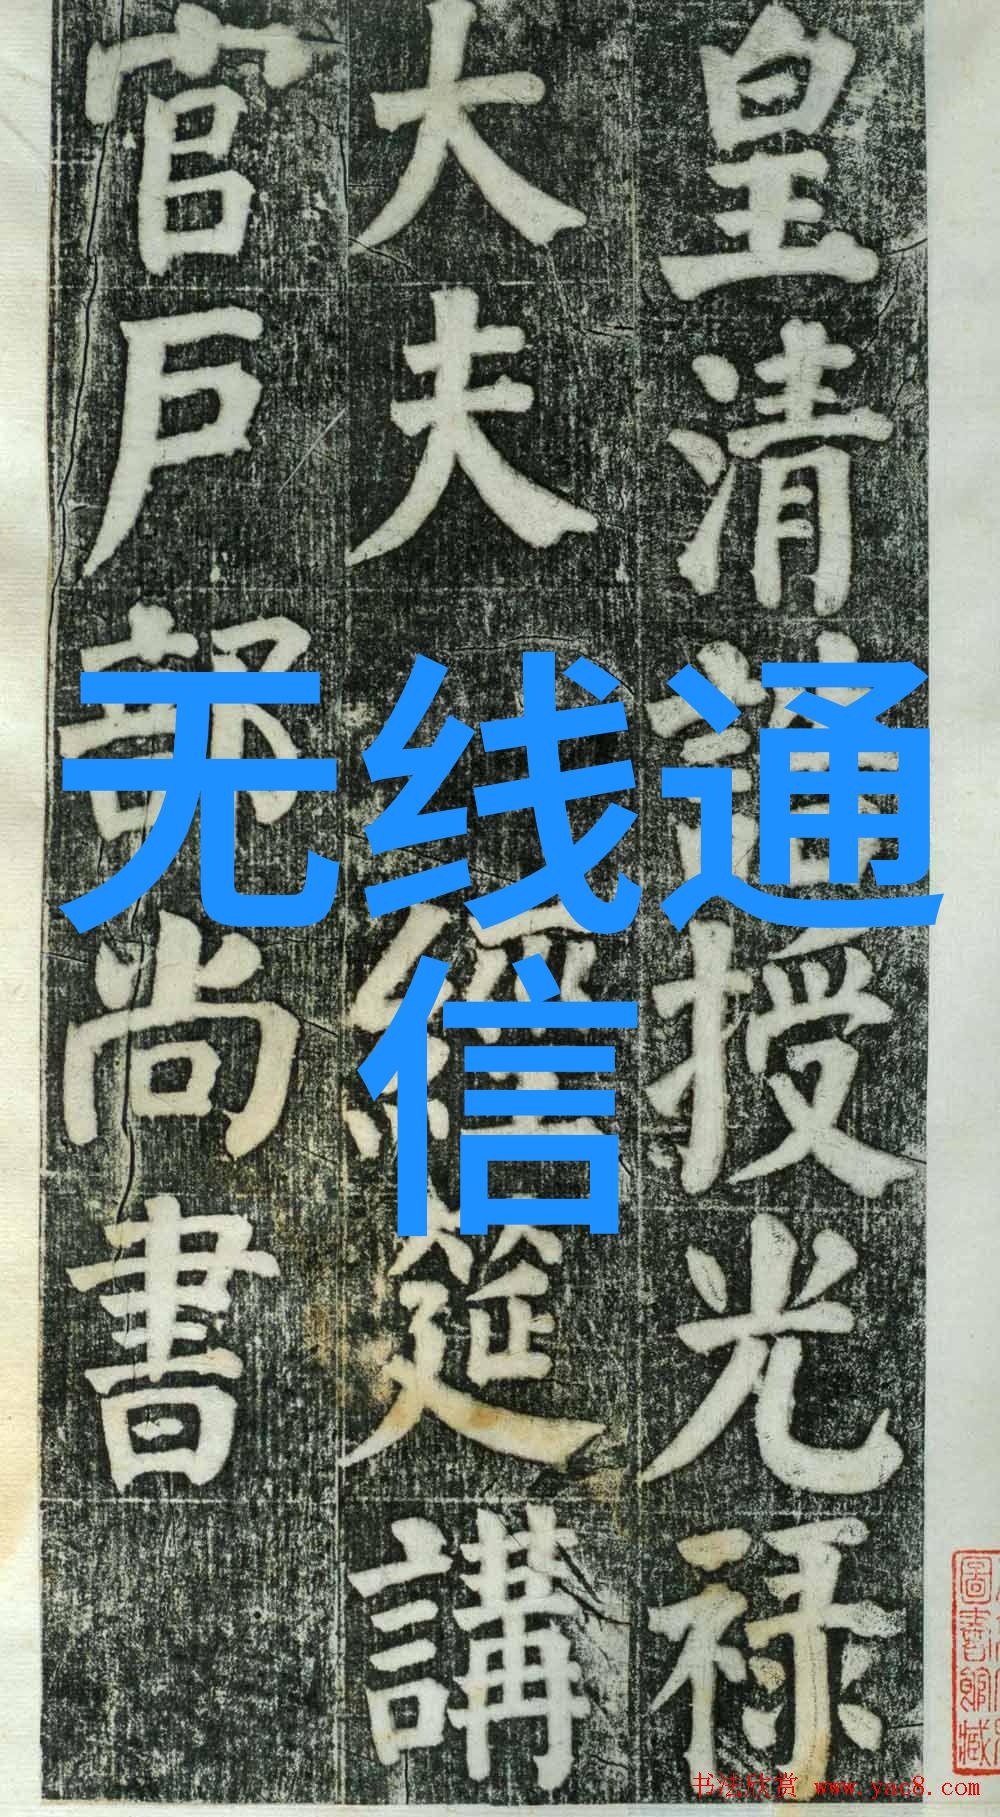 皇清誥授光禄
大夫經筵講
官戶部尚書
无线通
信
圖書館藏
书法欣赏 www.yac8.com